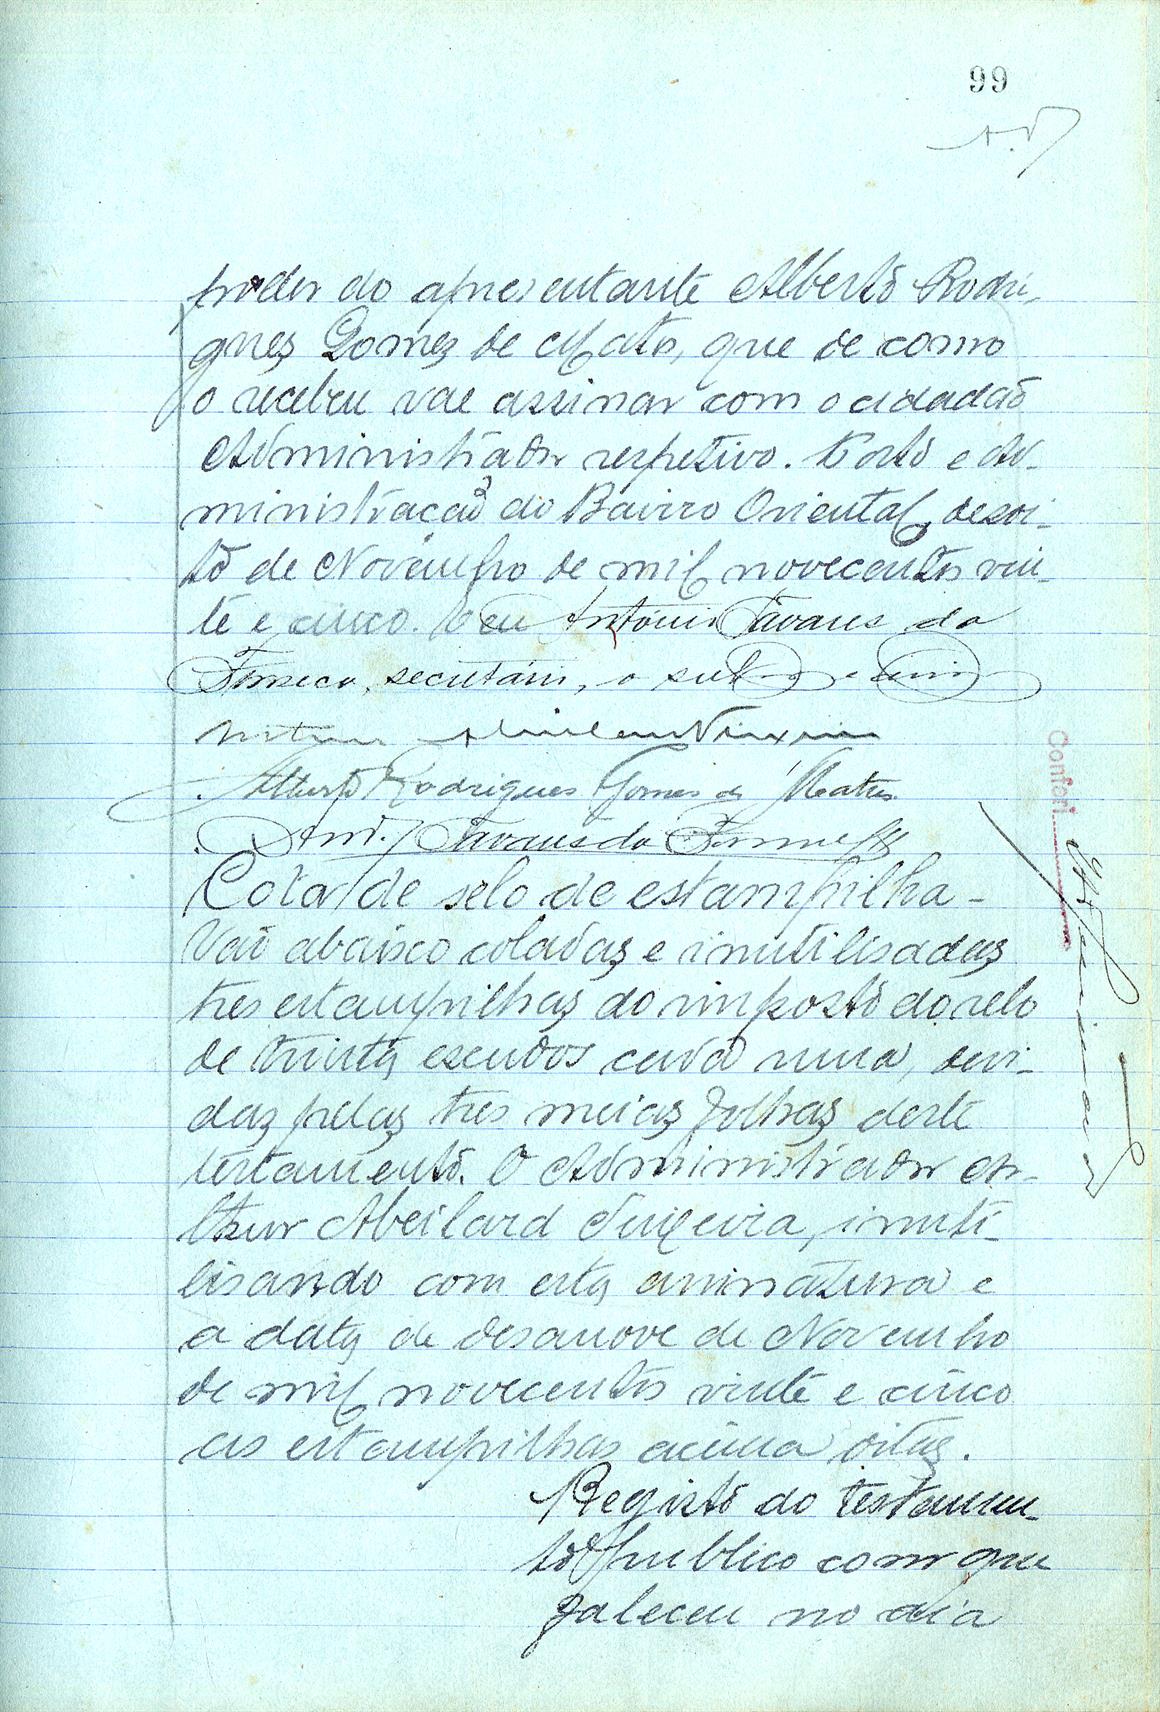 99
A.V
poder do apresentante Alberto Rodri-
gues Gomes de Matos, que de como
o recebeu vae assinar com o cidadão
Administrador respetivo. Porto e Ad-
ministração do Bairro Oriental, desoi-
to de Novembro de mil novecentos vin-
te e cinco. E eu António Tavares da
Fonseca, secretário, o sub e assino
Alberto Rodrigues Gomes de Matos
Antº. Tavares da Fonseca
Cota de selo de estampilha -
Vão abaixo coladas e inutilisadas
tres estampilhas do imposto do selo
de trinta escudos cada uma, devi-
das pelas tres meias folhas deste
testamento. O Administrador Ar-
thur Abeilard Teixeira, inuti-
lisando com esta assinatura e
a data de desanove de Novembro
de mil novecentos vinte e cinco
as estampilhas acima ditas.
Registo do testamen-
to publico com que
faleceu no dia
Conferi